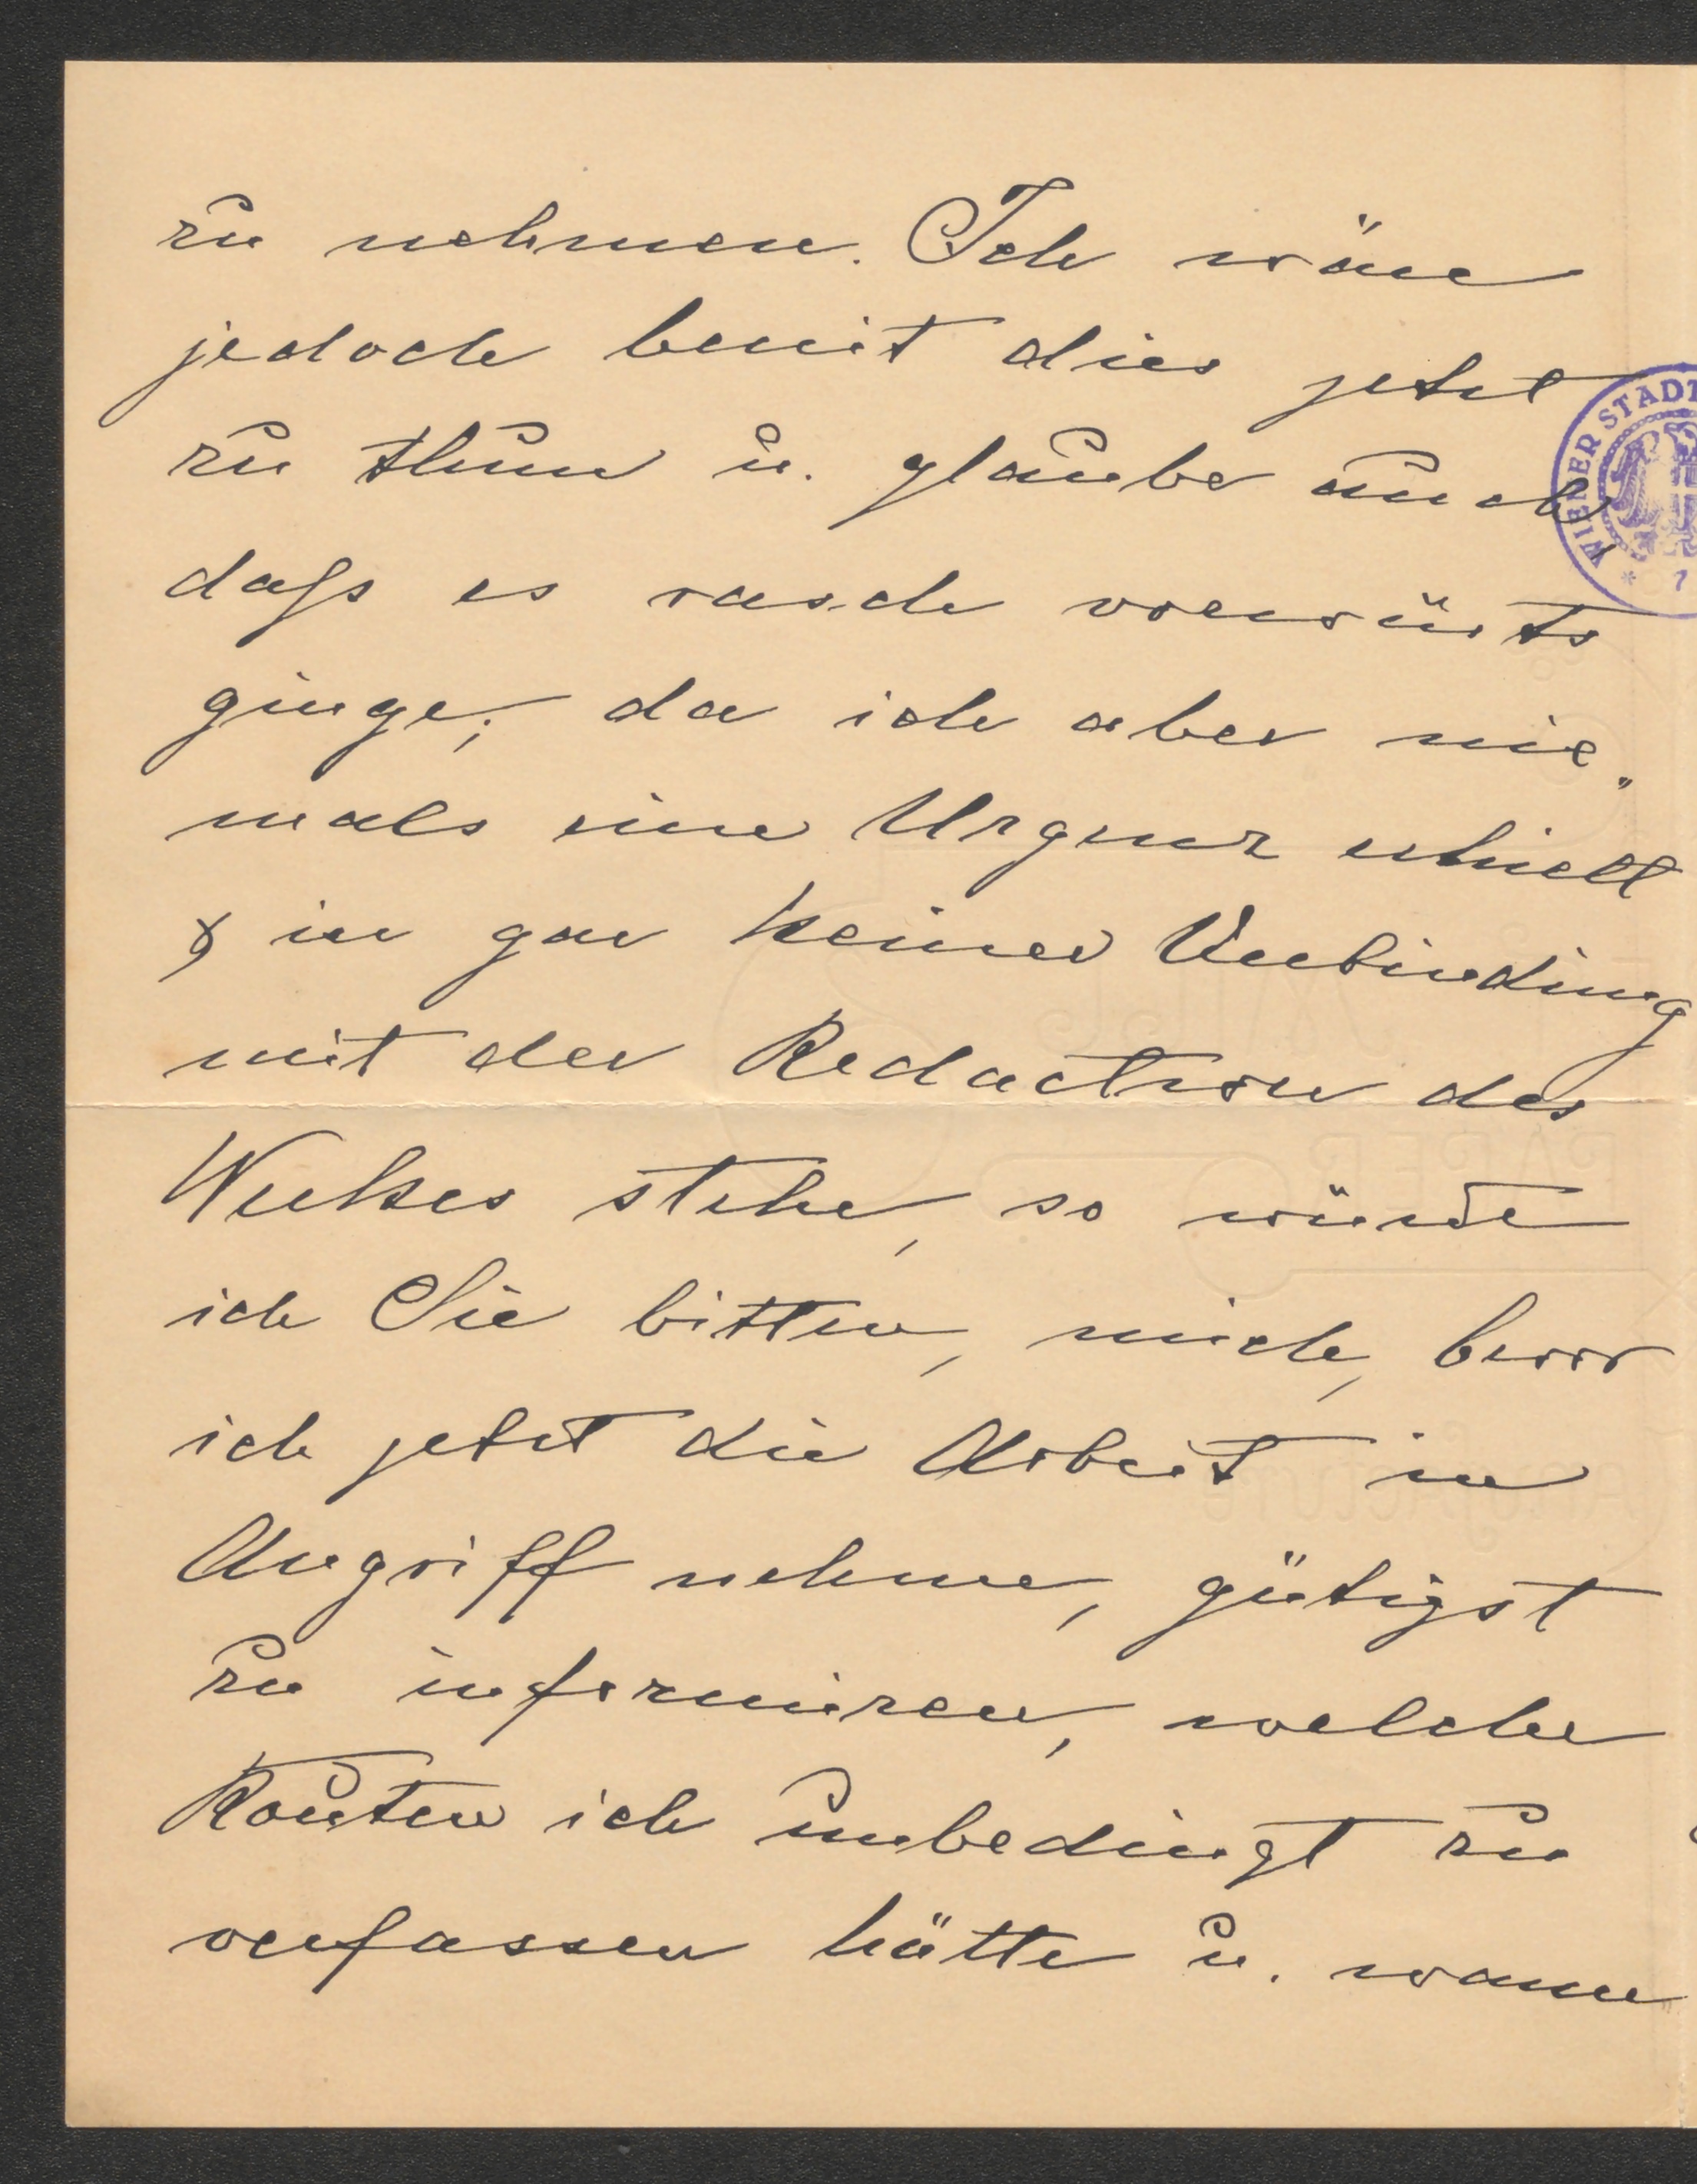 zu nehmen. Ich wäre
jedoch bereit dies jetzt
zu thun u. glaube auch
daſs es rasch vorwärts
ginge; da ich aber nie„
mals eine Urgenz erhielt
& in gar keiner Verbindung
mit der Redaction des
Werkes stehe, so würde
ich Sie bitten, mich, bevor
ich jetzt die Arbeit in
Angriff nehme, gütigst
zu informiren, welche
Routen ich unbedingt zu
verfassen hätte u. wann
WIENER STADT